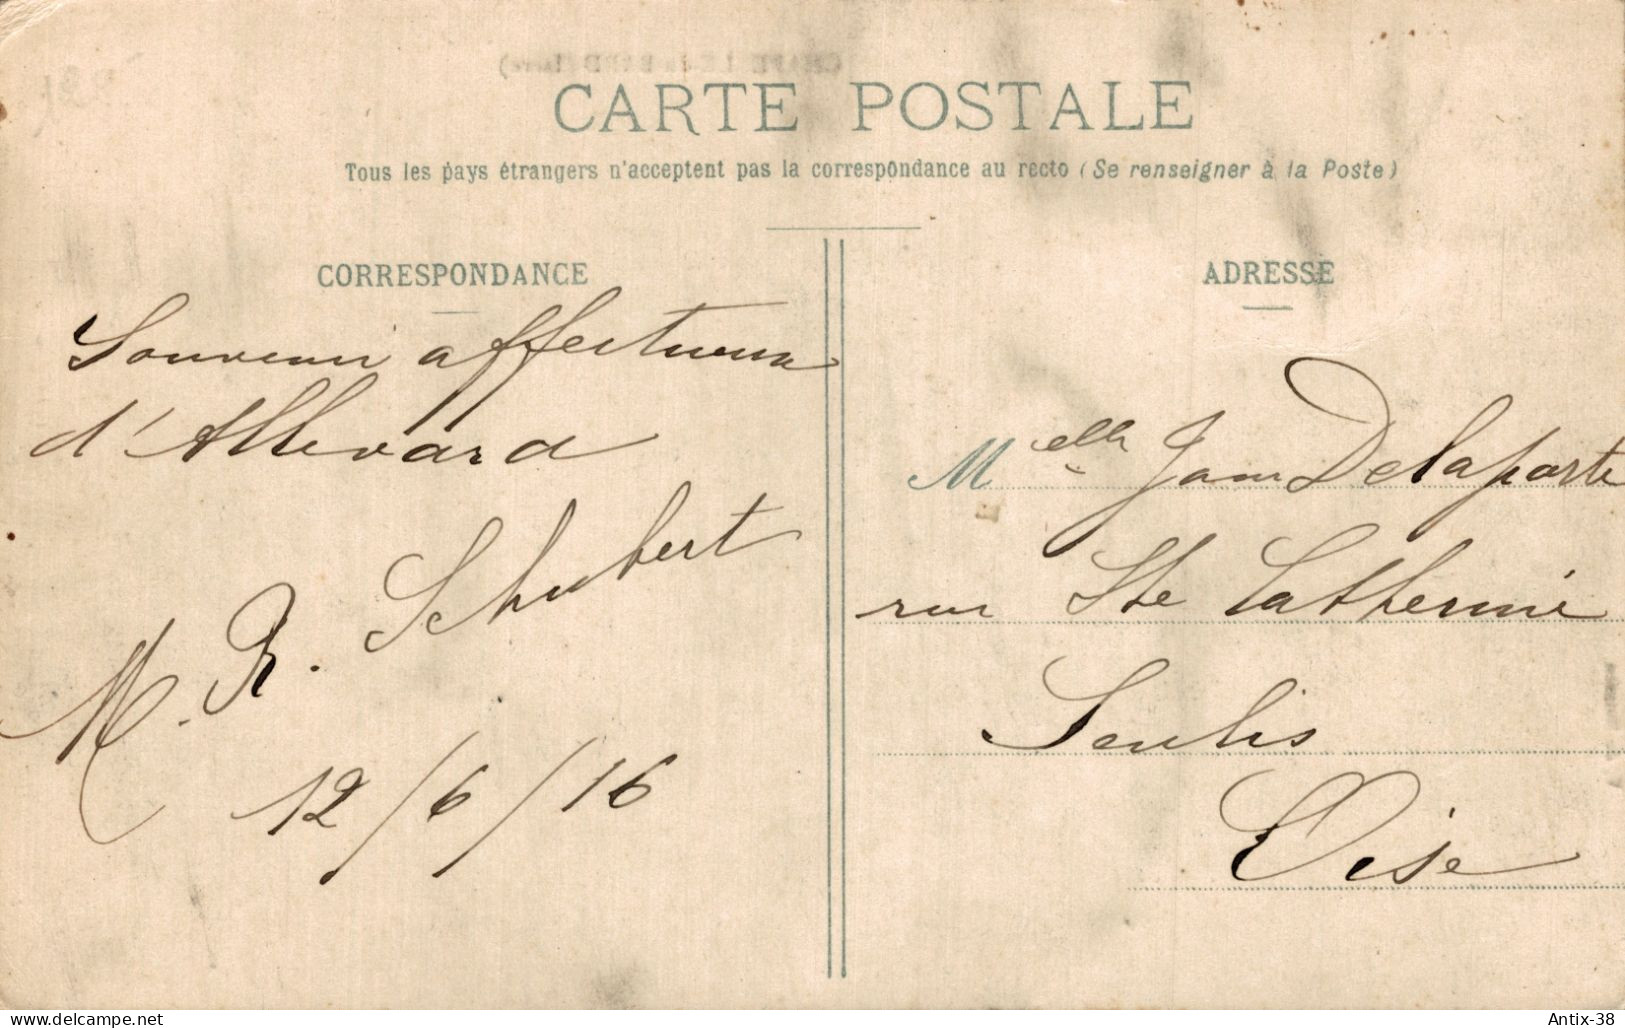 CARTE POSTALE
Tous les pays étrangers n'acceptent pas la correspondance au recto (Se renseigner à la Poste)
CORRESPONDANCE
Souvenir affectueux
d'Allevard
M. R. Schubert
12/6/16
ADRESSE
Melle Delaporte
rue Ste Catherine
Senlis
Oise
Antix-38